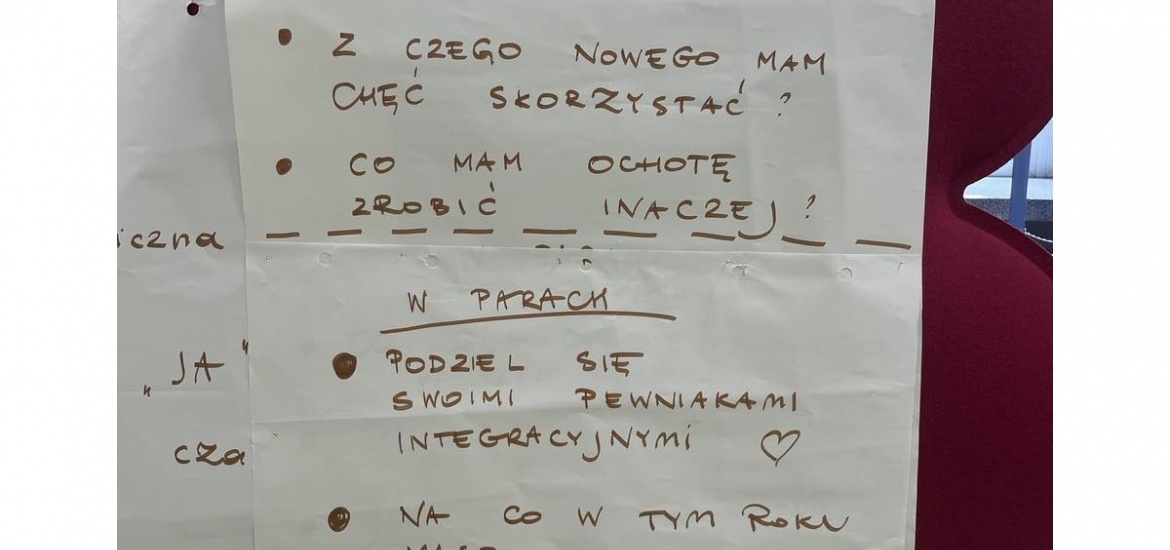 Z CZEGO NOWEGO MAM
CHĘĆ SKORZYSTAĆ ?
CO MAM OCHOTĘ
ZROBIĆ INACZEJ ?
iczna
W PARACH
„JA"
PODZIEL SIĘ
SWOIMI PEWNIAKAMI
INTEGRACYJNYMI ♡
cza
NA CO W TYM ROKU